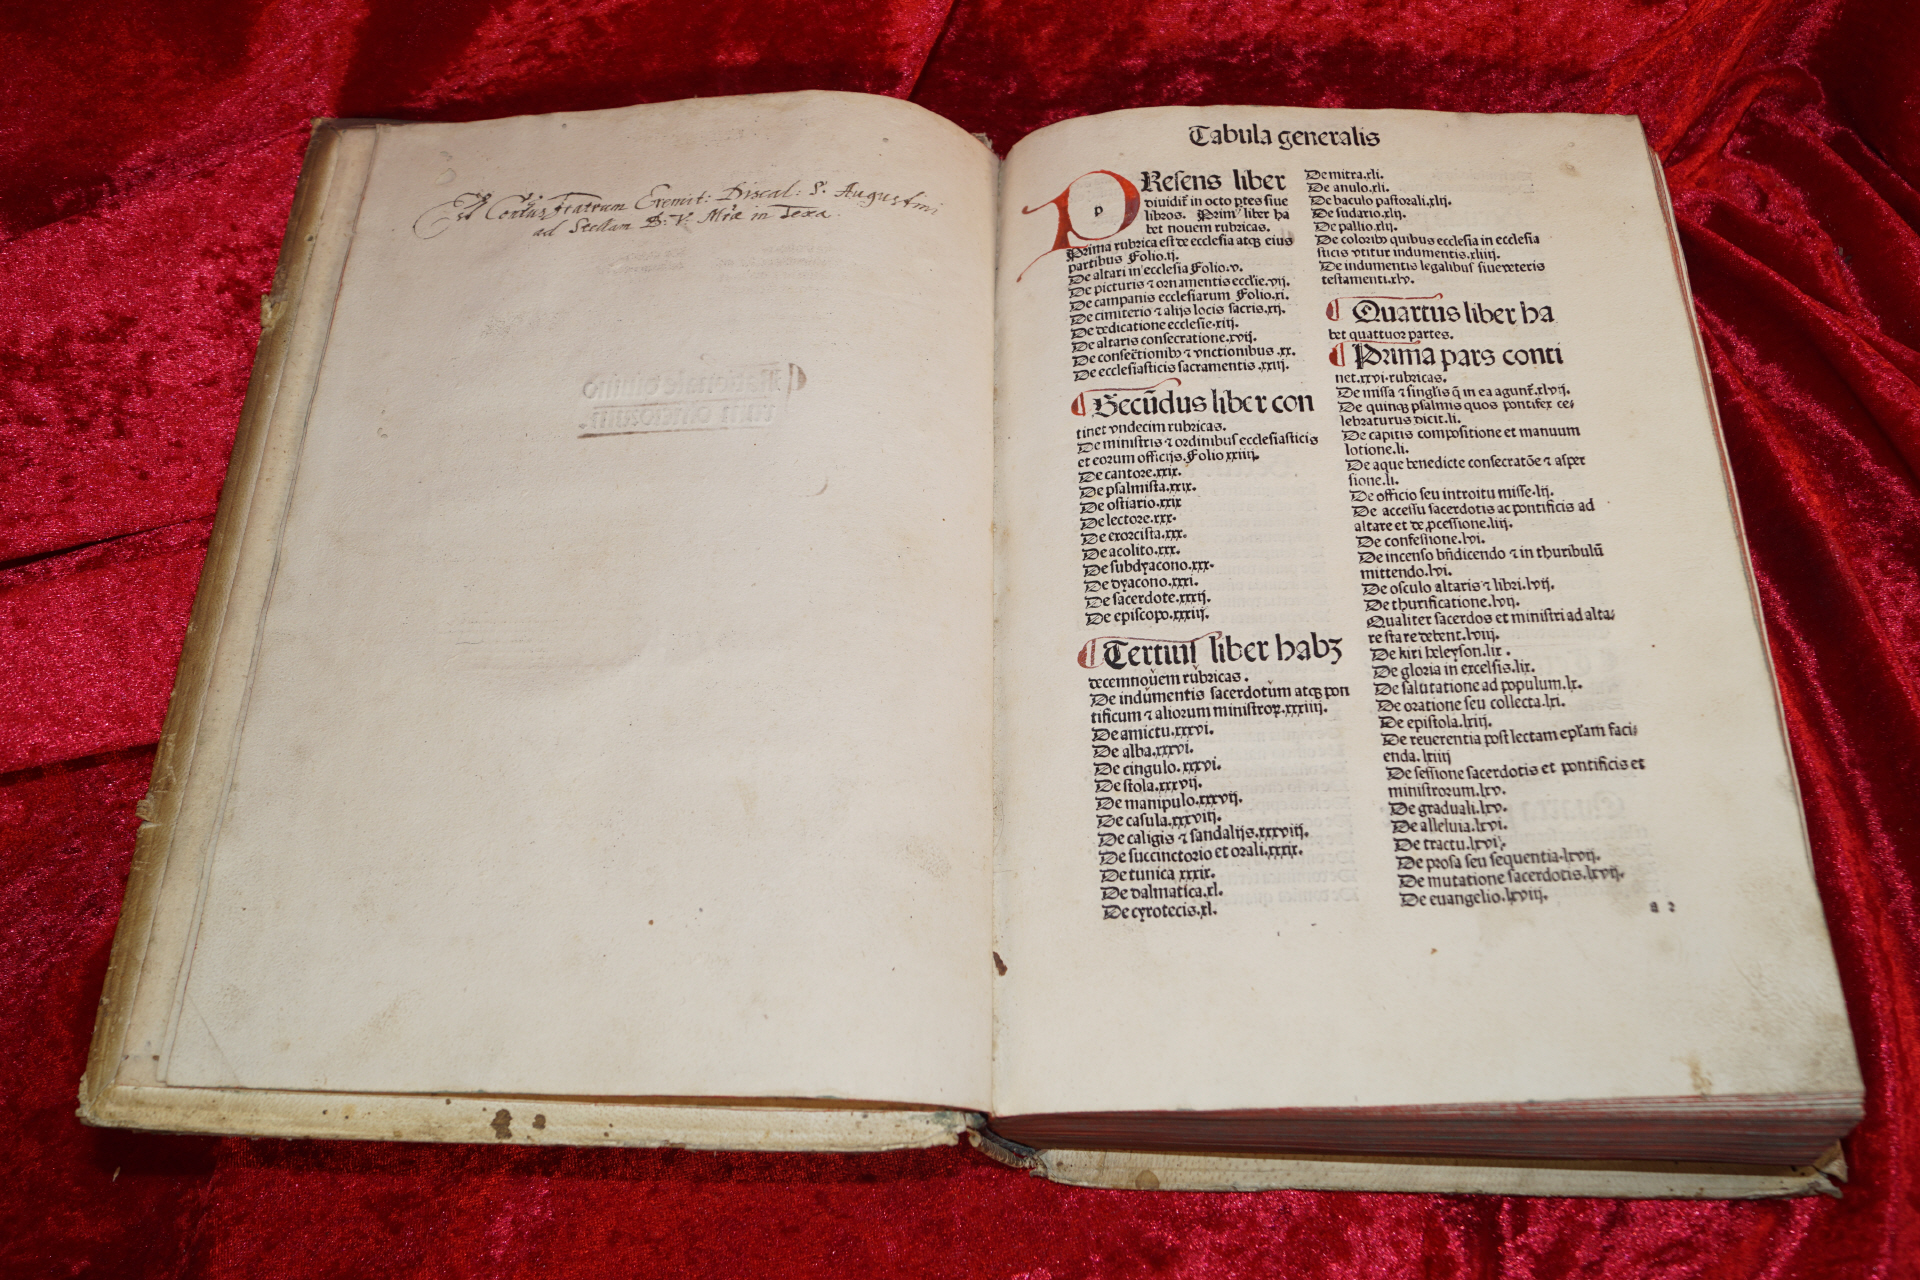 Est Contus Fratrum Eremit: Discal: S. Augustini
ad Stellam B: V: Mriæ in Texa.
Rationale diuino
rum officiorum.
Tabula generalis
PResens liber
p
diuidit̃ in octo ptes siue
libros. Primꝰ liber ha
bet nouem rubricas.
Prima rubrica est de ecclesia atqꝫ eius
partibus Folio.ij.
De altari in ecclesia Folio.v.
De picturis ⁊ ornamentis ecclie.vij.
De campanis ecclesiarum Folio.xi.
De cimiterio ⁊ alijs locis sacris.xij.
De dedicatione ecclesie.xiij.
De altaris consecratione.xvij.
De consectionibꝰ ⁊ vnctionibus .xx.
De ecclesiasticis sacramentis .xxiij.
Secũdus liber con
tinet vndecim rubricas.
De ministris ⁊ ordinibus ecclesiasticis
et eorum officijs. Folio xxiiij.
De cantore.xxix.
De psalmista.xxix.
De ostiario.xxix
De lectore.xxx.
De exorcista.xxx.
De acolito.xxx.
De subdyacono.xxx.
De dyacono.xxxi.
De sacerdote.xxxij.
De episcopo.xxxiij.
Tertius liber habꝫ
decemnouem rubricas.
De indumentis sacerdotum atqꝫ pon
tificum ⁊ aliorum ministroꝝ.xxxiiij.
De amictu.xxxvi.
De alba.xxxvi.
De cingulo.xxxvi.
De stola.xxxvij.
De manipulo.xxxvij.
De casula.xxxviij.
De caligis ⁊ sandalijs.xxxviij.
De succinctorio et orali.xxxix.
De tunica xxxix.
De dalmatica.xl.
De cyrotecis.xl.
De mitra.xli.
De anulo.xli.
De baculo pastorali.xlij.
De sudario.xlij.
De pallio.xlij.
De coloribꝰ quibus ecclesia in ecclesia
sticis vtitur indumentis.xliiij.
De indumentis legalibus siue veteris
testamenti.xlv.
Quartus liber ha
bet quattuor partes.
Prima pars conti
net.xxvi.rubricas.
De missa ⁊ singlis q̃ in ea agunt̃.xlvij.
De quinqꝫ psalmis quos pontifex ce⸗
lebraturus dicit.li.
De capitis compositione et manuum
lotione.li.
De aque benedicte consecratõe ⁊ asper
sione.li.
De officio seu introitu misse.lij.
De accessu sacerdotis ac pontificis ad
altare et de ꝓcessione.liij.
De confessione.lvi.
De incenso bñdicendo ⁊ in thuribulũ
mittendo.lvi.
De osculo altaris ⁊ libri.lvij.
De thurificatione.lvij.
Qualiter sacerdos et ministri ad alta⸗
re stare debent.lviij.
De kiri heleyson.lix .
De gloria in excelsis.lix.
De salutatione ad populum.lx.
De oratione seu collecta.lxi.
De epistola.lxiij.
De reuerentia post lectam epl̃am faci⸗
enda.lxiiij
De sessione sacerdotis et pontificis et
ministrorum.lxv.
De graduali.lxv.
De alleluia.lxvi.
De tractu.lxvi.
De prosa seu sequentia.lxvij.
De mutatione sacerdotis.lxvij.
De euangelio.lxviij.
a 2